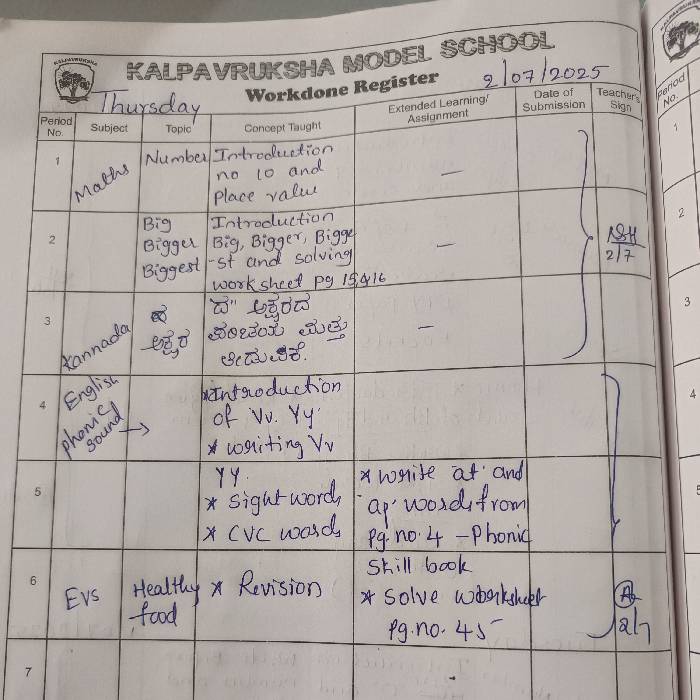 KALPAVRUKSHA
KALPAVRUKSHA MODEL SCHOOL
Workdone Register
2/07/2025
Thursday
Period No.
Subject
Topic
Concept Taught
Extended Learning/ Assignment
Date of Submission
Teacher's Sign
1
Maths
Number
Introduction
no 10 and
place value
—
2
Big
Bigger
Biggest
Introduction
Big, Bigger, Bigge
-st and solving
worksheet pg 15&16
—
2/7
3
Kannada
ಅಕ್ಷರ
ದ" ಅಕ್ಷರದ
ಪರಿಚಯ ಮತ್ತು
—
4
English
phonic
sound →
* Introduction
of Vv. Yy
* writing Vv
5
YY.
* Sight words
* CVC words
* write 'at' and
'ap' words from
pg.no. 4 - Phonic
6
EVS
Healthy
food
* Revision
Skill book
* Solve worksheet
pg.no. 45
2/7
7
Period
No.
1
2
3
4